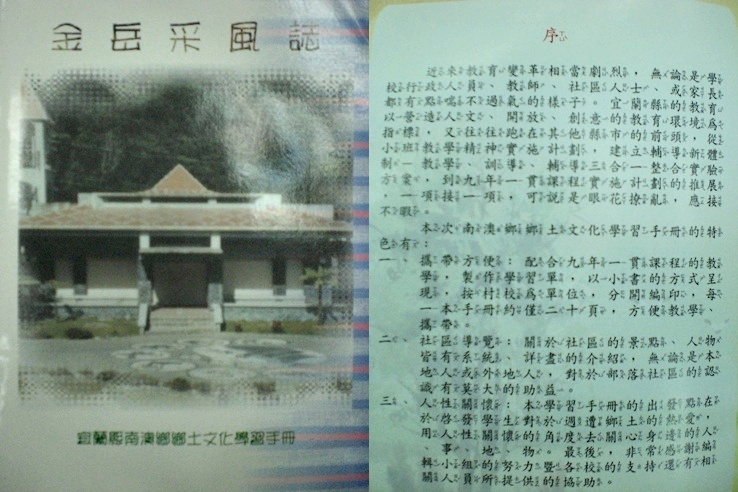 金岳采風誌
宜蘭縣南澳鄉鄉土文化學習手冊
序
近來教育變革相當劇烈，無論是學
校行政人員、教師、社區人士、或家長
都有點喘不過氣的樣子。宜蘭縣的教育
以營造人文、開放、創意的教育環境為
指標，又往往跑在其他縣市的前頭，從
小班教學精神實施計劃，建立輔導新體
制—教學、訓導、輔導三合一整合實驗
方案，到九年一貫課程實施計劃的推展
，一項接一項，可說是眼花撩亂，應接
不暇。
本次南澳鄉鄉土文化學習手冊的特
色有：
一、攜帶方便：配合九年一貫課程的教
學，製作學習單，以小書的方式呈
現，按村校為單位，分開編印，每
一本手冊約僅二十頁，方便教學、
攜帶。
二、社區導覽：關於社區的景點、人物
皆有系統、詳盡的介紹，無論是本
地人或外地人，對於部落社區的認
識有莫大的助益。
三、人性關懷：本學習手冊的出發點在
於啓發學生對於週遭鄉土的熱愛，
用人性關懷的角度去關心身邊的人
、事、地、物。最後，非常感謝編
輯小組的努力暨各校的支持還有相
關人員所提供的協助。